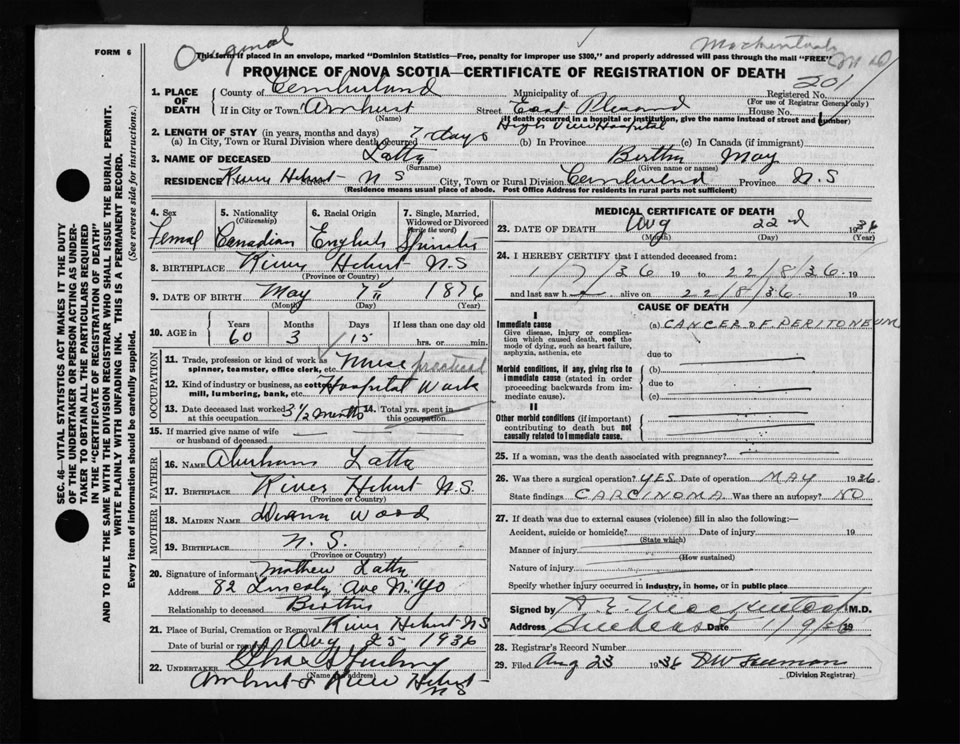 Original
FORM 6
This form if placed in an envelope, marked "Dominion Statistics—Free, penalty for improper use $300," and properly addressed will pass through the mail "FREE"
PROVINCE OF NOVA SCOTIA—CERTIFICATE OF REGISTRATION OF DEATH
201
1. PLACE OF DEATH
County of Cumberland Municipality of Registered No.
(For use of Registrar General only)
If in City or Town Amherst Street East Pleasant House No.
(Name) (If death occurred in a hospital or institution, give the name instead of street and number)
High View Hospital
2. LENGTH OF STAY (in years, months and days)
(a) In City, Town or Rural Division where death occurred 7 days (b) In Province (c) In Canada (if immigrant)
3. NAME OF DECEASED Latta Bertha May
(Surname) (Given name or names)
RESIDENCE River Hebert N S City, Town or Rural Division Cumberland Province N.S
(Residence means usual place of abode. Post Office Address for residents in rural parts not sufficient)
SEC. 46—VITAL STATISTICS ACT MAKES IT THE DUTY
OF THE UNDERTAKER OR PERSON ACTING AS UNDER-
TAKER TO OBTAIN ALL THE PARTICULARS REQUIRED
IN THE "CERTIFICATE OF REGISTRATION OF DEATH"
AND TO FILE THE SAME WITH THE DIVISION REGISTRAR WHO SHALL ISSUE THE BURIAL PERMIT.
WRITE PLAINLY WITH UNFADING INK. THIS IS A PERMANENT RECORD.
Every item of information should be carefully supplied. (See reverse side for instructions.)
4. Sex 5. Nationality (Citizenship) 6. Racial Origin 7. Single, Married, Widowed or Divorced (write the word)
Femal Canadian English
8. BIRTHPLACE River Hebert N.S
(Province or Country)
9. DATE OF BIRTH May 7" 1876
(Month) (Day) (Year)
10. AGE in Years Months Days If less than one day old
60 3 15 hrs. or min.
OCCUPATION
11. Trade, profession or kind of work as spinner, teamster, office clerk, etc. Nurse practical
12. Kind of industry or business, as cotton mill, lumbering, bank, etc. Hospital Work
13. Date deceased last worked at this occupation 3 1/2 months 14. Total yrs. spent in this occupation
15. If married give name of wife or husband of deceased
FATHER
16. NAME Abraham Latta
17. BIRTHPLACE River Hebert N.S.
(Province or Country)
MOTHER
18. MAIDEN NAME Wood
19. BIRTHPLACE N.S.
(Province or Country)
20. Signature of informant Mathew Latta
Address 82 Ave
Relationship to deceased Brother
21. Place of Burial, Cremation or Removal River Hebert N S
Date of burial or removal Aug 25 1936
22. UNDERTAKER
(Name and address)
Amherst & River Hebert N S
MEDICAL CERTIFICATE OF DEATH
23. DATE OF DEATH Aug 22nd 1936
(Month) (Day) (Year)
24. I HEREBY CERTIFY that I attended deceased from:
1/7/36 19 to 22/8/36 19
and last saw h alive on 22/8/36 19
CAUSE OF DEATH
I
Immediate cause (a) CANCER OF PERITONEUM
Give disease, injury or complication which caused death, not the mode of dying, such as heart failure, asphyxia, asthenia, etc
due to
Morbid conditions, if any, giving rise to immediate cause (stated in order proceeding backwards from immediate cause).
(b)
due to
(c)
II
Other morbid conditions (if important) contributing to death but not causally related to immediate cause.
25. If a woman, was the death associated with pregnancy?
26. Was there a surgical operation? YES Date of operation MAY 1936
State findings CARCINOMA Was there an autopsy? NO
27. If death was due to external causes (violence) fill in also the following:—
Accident, suicide or homicide? Date of injury 19
(State which)
Manner of injury
(How sustained)
Nature of injury
Specify whether injury occurred in industry, in home, or in public place
Signed by M.D.
Address Amherst Date 19
28. Registrar's Record Number
29. Filed Aug 23 1936
(Division Registrar)